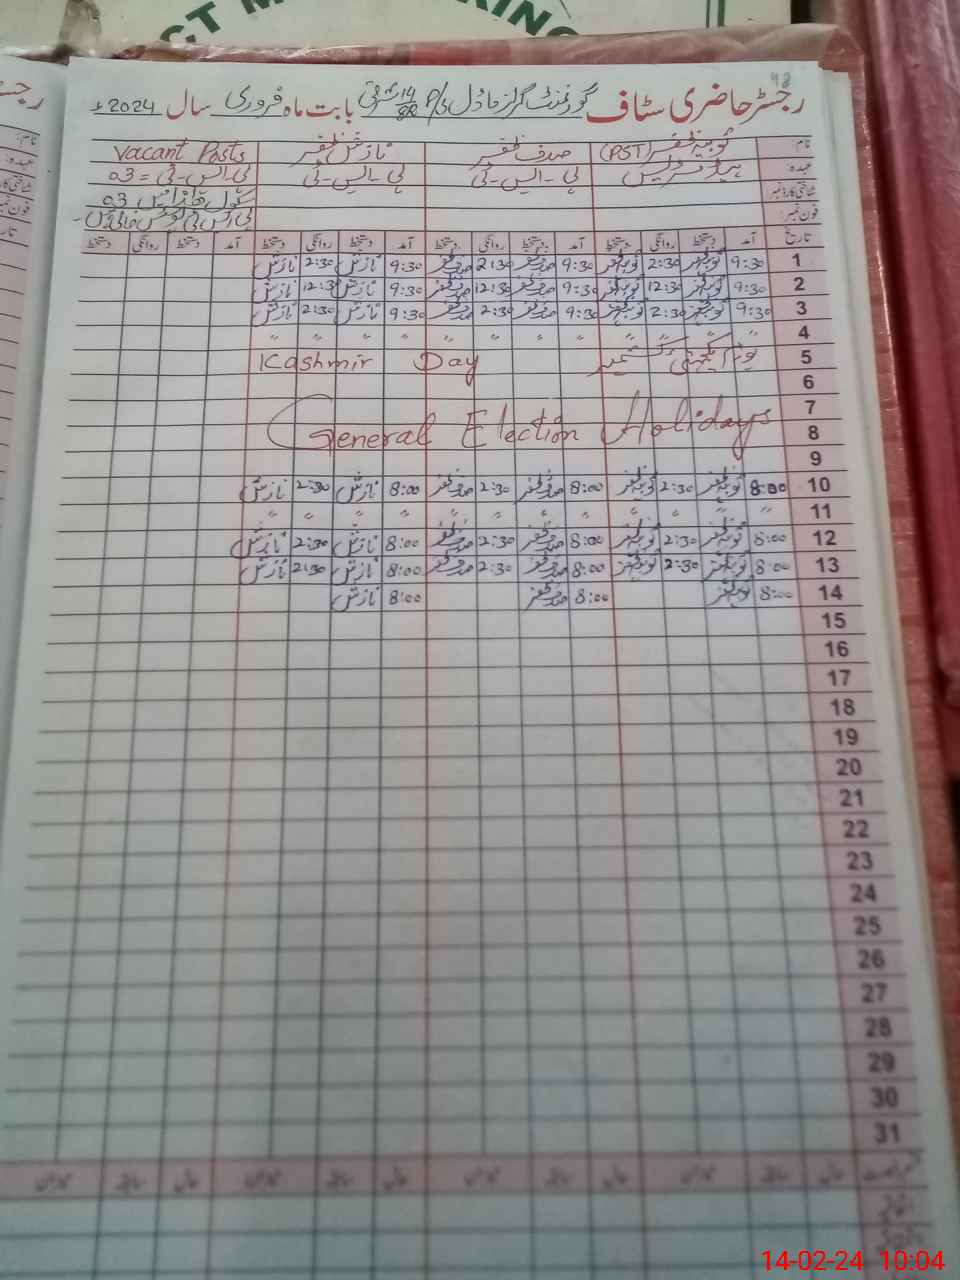 CT M KING
48
رجسٹر حاضری سٹاف گورنمنٹ گرلز ماڈل پی/P 14/8R شرقی بابت ماہ فروری سال 2024ء
نام: ثوبیہ ظفر (PST) صدف ظفر نازش ظفر Vacant Posts
عہدہ: ہیڈ مسٹریس پی-ایس-ٹی پی-ایس-ٹی پی-ایس-ٹی = 03
شناختی کارڈ نمبر سکول 03
فون نمبر:
تاریخ آمد دستخط روانگی دستخط آمد دستخط روانگی دستخط آمد دستخط روانگی دستخط آمد دستخط روانگی دستخط
1 9:30 ثوبیہ ظفر 2:30 ثوبیہ ظفر 9:30 صدف ظفر 2:30 صدف ظفر 9:30 نازش 2:30 نازش
2 9:30 ثوبیہ ظفر 12:30 ثوبیہ ظفر 9:30 صدف ظفر 12:30 صدف ظفر 9:30 نازش 12:30 نازش
3 9:30 ثوبیہ ظفر 2:30 ثوبیہ ظفر 9:30 صدف ظفر 2:30 صدف ظفر 9:30 نازش 2:30 نازش
4 " " " " " " " " " " " "
5 یوم یکجہتی کشمیر Kashmir Day
6
7
8 General Election Holidays
9
10 8:00 ثوبیہ ظفر 2:30 ثوبیہ ظفر 8:00 صدف ظفر 2:30 صدف ظفر 8:00 نازش 2:30 نازش
11 " " " " " " " " " " " "
12 8:00 ثوبیہ ظفر 2:30 ثوبیہ ظفر 8:00 صدف ظفر 2:30 صدف ظفر 8:00 نازش 2:30 نازش
13 8:00 ثوبیہ ظفر 2:30 ثوبیہ ظفر 8:00 صدف ظفر 2:30 صدف ظفر 8:00 نازش 2:30 نازش
14 8:00 ثوبیہ ظفر 8:00 صدف ظفر 8:00 نازش
15
16
17
18
19
20
21
22
23
24
25
26
27
28
29
30
31
14-02-24 10:04